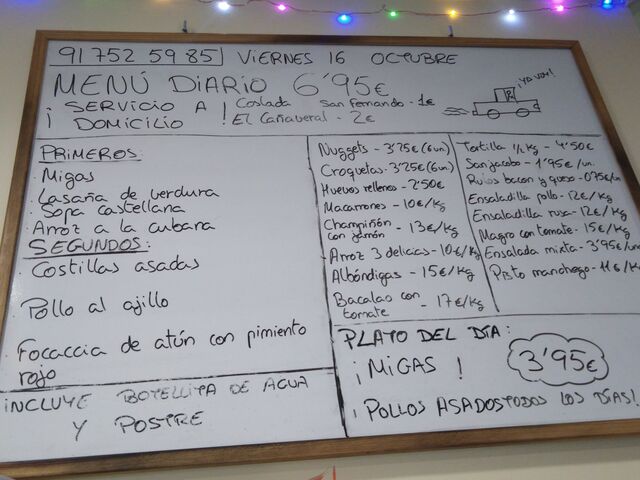 91 752 59 85 VIERNES 16 OCTUBRE
MENÚ DIARIO 6'95€
¡YA VOY!
¡ SERVICIO A DOMICILIO !
Coslada San Fernando - 1€
El Cañaveral - 2€
PRIMEROS:
· Migas
· Lasaña de verdura
· Sopa castellana
· Arroz a la cubana
SEGUNDOS:
· Costillas asadas
· Pollo al ajillo
· Focaccia de atún con pimiento
rojo
INCLUYE BOTELLITA DE AGUA
Y POSTRE
Nuggets - 3'25€ (6un)
Croquetas - 3'25€ (6un)
Huevos rellenos - 2'50€
Macarrones - 10€/kg
Champiñón
con jamón - 13€/kg
Arroz 3 delicias - 10€/kg
Albóndigas - 15€/kg
Bacalao con
tomate - 17€/kg
Tortilla 1/2 kg - 4'50€
Sanjacobo - 1'95€/un.
bacon y queso - 0'75€/un
Ensaladilla pollo - 12€/kg
Ensaladilla rusa - 12€/kg
Magro con tomate - 15€/kg
Ensalada mixta - 3'95€/un
Pisto manchego - 11€/kg
PLATO DEL DÍA:
¡MIGAS ! 3'95€
¡ POLLOS ASADOS TODOS LOS DÍAS!